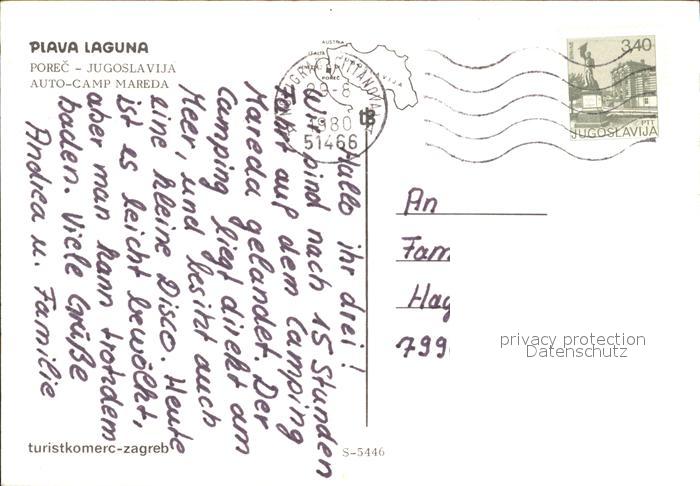 PLAVA LAGUNA
POREČ – JUGOSLAVIJA
AUTO-CAMP MAREDA
AUSTRIA
ITALIA
POREČ
29-8
1980
51466
3,40
PTT
JUGOSLAVIJA
Hallo ihr drei!
Wir sind nach 15 Stunden
Fahrt auf dem Camping
Mareda gelandet. Der
Camping liegt direkt am
Meer, und besitzt auch
eine kleine Disco. Heute
ist es leicht bewölkt,
aber man kann trotzdem
baden. Viele Grüße
Andrea u. Familie
An
Fam
Hag
799
privacy protection
Datenschutz
turistkomerc-zagreb
S-5446